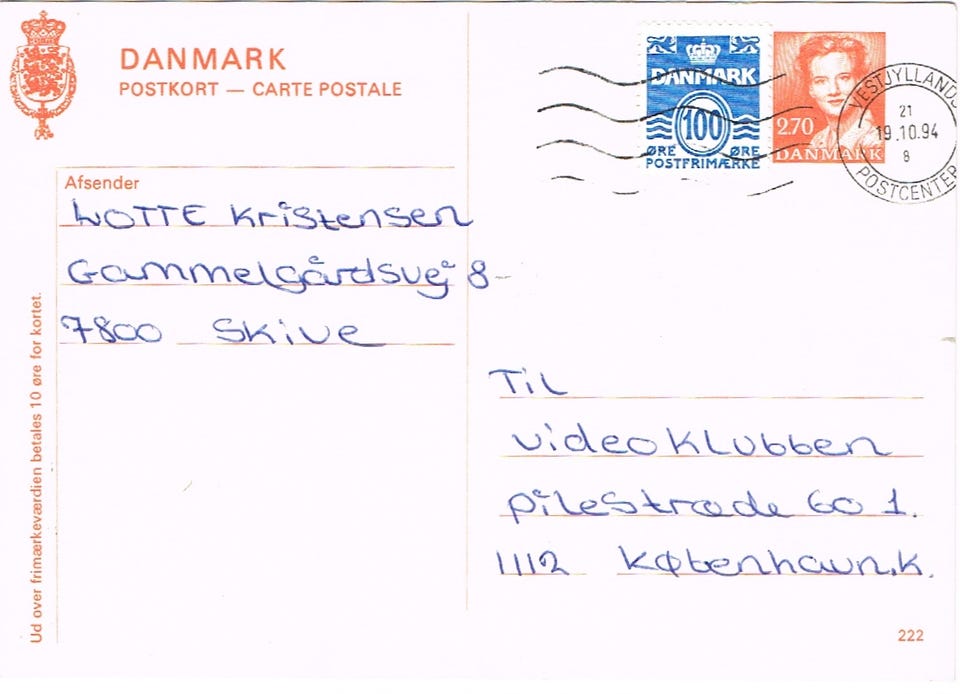 DANMARK
POSTKORT — CARTE POSTALE
DANMARK
100
ØRE ØRE
POSTFRIMÆRKE
2.70
DANMARK
VESTJYLLANDS
21
19.10.94
8
POSTCENTER
Afsender
LOTTE Kristensen
Gammelgårdsvej 8-
7800 Skive
Til
videoklubben
pilestræde 60 1.
1112 København.K.
Ud over frimærkeværdien betales 10 øre for kortet.
222